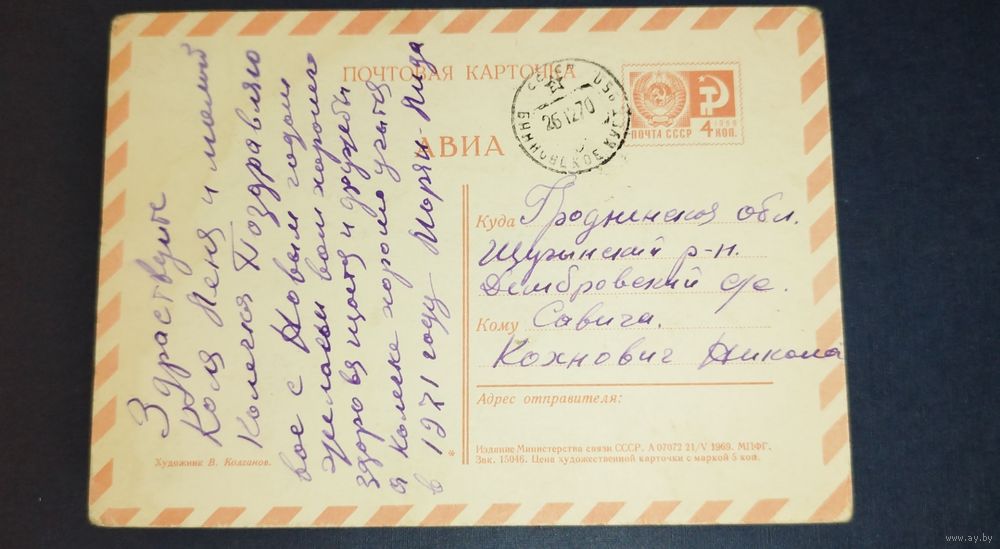 ПОЧТОВАЯ КАРТОЧКА
АВИА
26 12 70
ПОЧТА СССР
1966
4 КОП.
Здраствуйте
Коля Леня и милий
Колечка Поздравляю
вас с Новым годом
желаем вам хорошего
здоровя щастя и дружбы
а Колечке хорошо учытся
в 1971 году
Куда Гродненская обл.
Щучинский р-н.
Дембровский с/с.
Кому Савичи.
Кохнович Никола
Адрес отправителя:
Художник В. Колганов.
Издание Министерства связи СССР. А 07072 21/V 1969. МПФГ.
Зак. 15046. Цена художественной карточки с маркой 5 коп.
www.ay.by